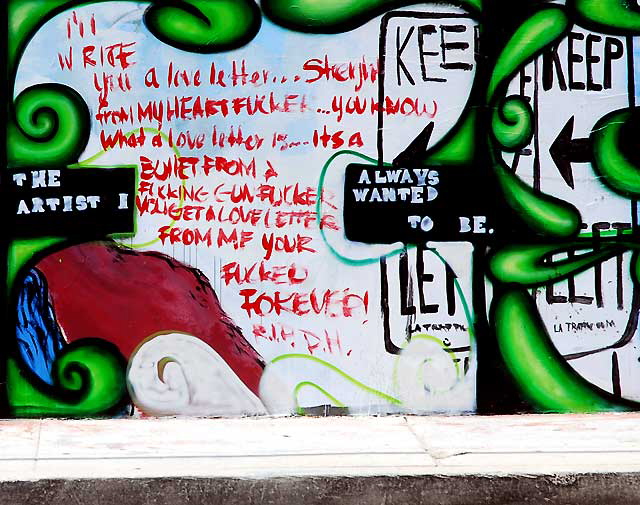 I'll
WRITE
you a love letter... Straight
from MY HEART FUCKER...YOU KNOW
what a love letter is.... Its a
BULLET FROM a
FUCKING GUN FUCKER
YOU GET A LOVE LETTER
FROM ME YOUR
FUCKED
FOREVER!
R.I.P. D.H.
THE
ARTIST I
ALWAYS
WANTED
TO BE.
KEE
LET
LA TRAFFIC
KEEP
LEFT
LA TRAFFIC COM